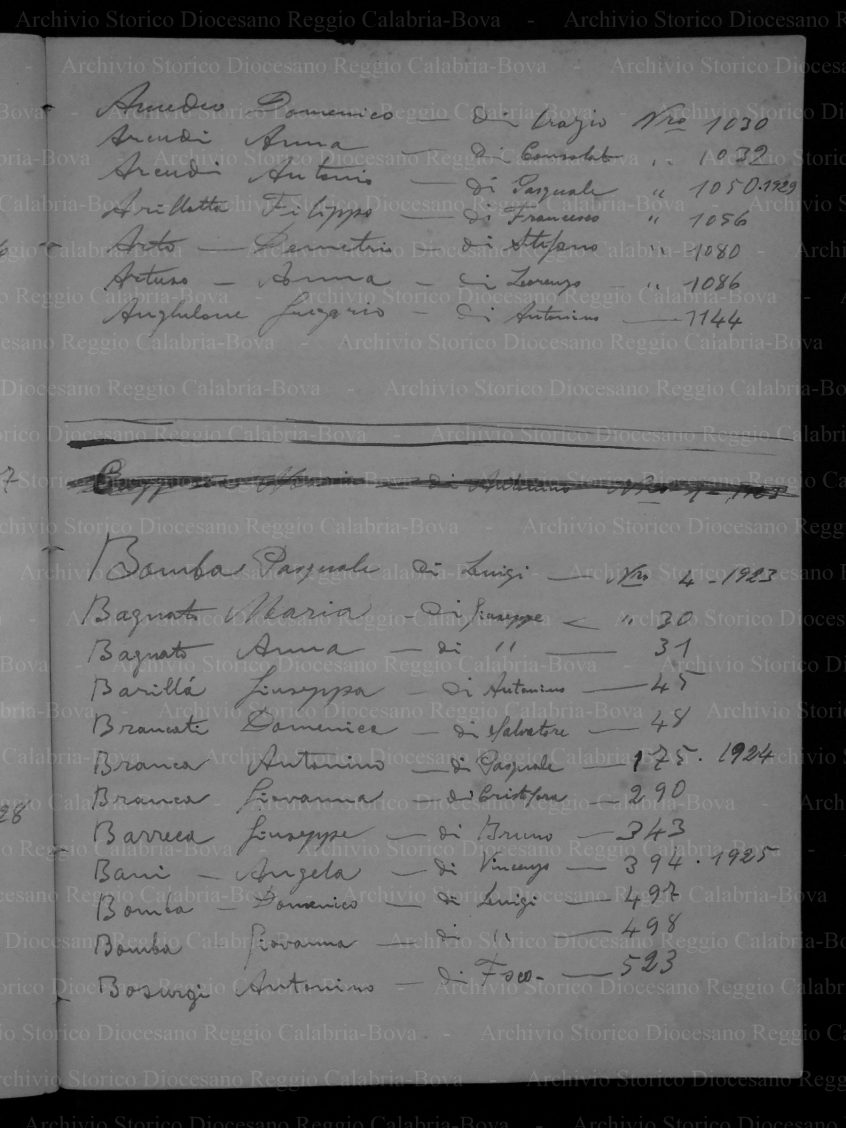 Amedeo Domenico — di Orazio Nro 1030
Arcudi Anna — di Consolato " 1032
Arcudi Antonio — di Pasquale " 1050.1929
Arillotta Filippo — di Francesco " 1056
Arto — Demetrio — di Stefano " 1080
Artuso — Anna — di Lorenzo — " 1086
Anghelone Gregorio — di Antonino — 1144
Maria — di Antonino Nro
Bomba Pasquale di Luigi — Nro 4-1923
Bagnato Maria — di Giuseppe — " 30
Bagnato Anna — di " — 31
Barillá Giuseppa — di Antonino — 45
Brancati Domenica — di Salvatore — 48
Branca Antonino — di Pasquale — 175. 1924
Branca Giovanna — di Cristofaro — 290
Barreca Giuseppe — di Bruno — 343
Bani — Angela — di Vincenzo — 394.1925
Bomba — Domenico — di Luigi — 497
Bomba — Giovanna — di " — 498
Bosurgi Antonino — di Fsco — 523
Archivio Storico Diocesano Reggio Calabria-Bova